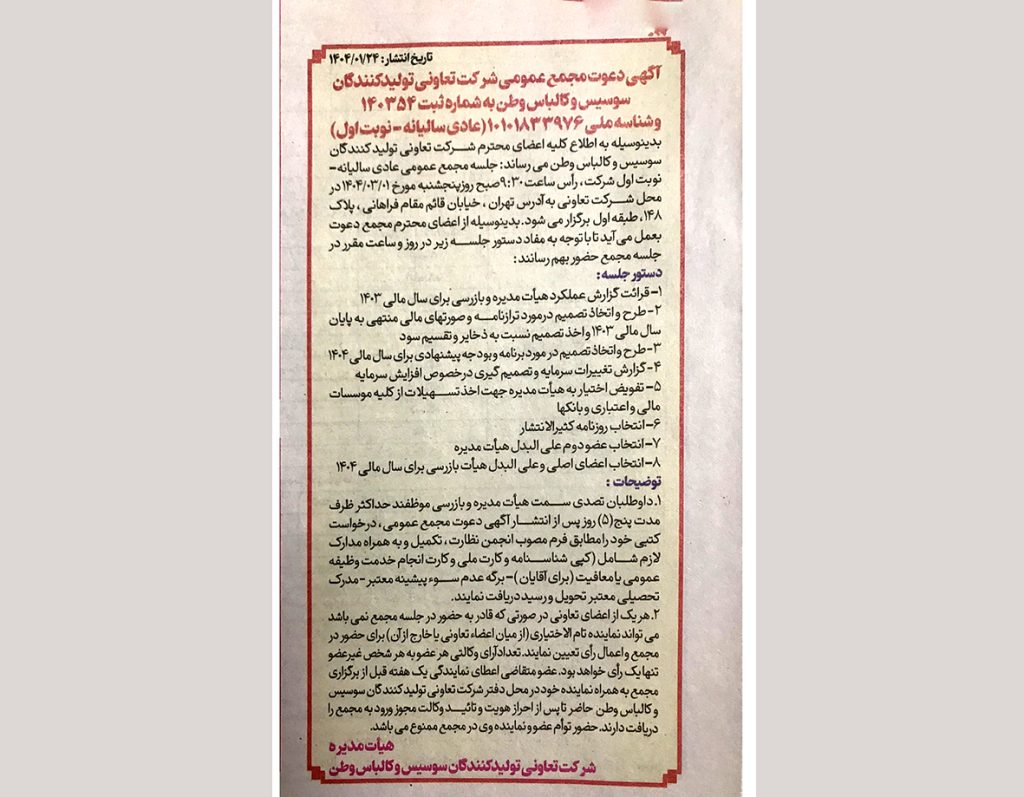 تاریخ انتشار: ۱۴۰۴/۰۱/۲۴
آگهی دعوت مجمع عمومی شرکت تعاونی تولیدکنندگان
سوسیس و کالباس وطن به شماره ثبت ۱۴۰۳۵۴
و شناسه ملی ۱۰۱۰۱۸۳۳۹۷۶ (عادی سالیانه - نوبت اول)
بدینوسیله به اطلاع کلیه اعضای محترم شرکت تعاونی تولید کنندگان
سوسیس و کالباس وطن می رساند: جلسه مجمع عمومی عادی سالیانه-
نوبت اول شرکت، رأس ساعت ۹:۳۰ صبح روز پنجشنبه مورخ ۱۴۰۴/۰۳/۰۱ در
محل شرکت تعاونی به آدرس تهران ، خیابان قائم مقام فراهانی ، پلاک
۱۴۸، طبقه اول برگزار می شود. بدینوسیله از اعضای محترم مجمع دعوت
بعمل می آید تا با توجه به مفاد دستور جلسه زیر در روز و ساعت مقرر در
جلسه مجمع حضور بهم رسانند :
دستور جلسه :
۱- قرائت گزارش عملکرد هیأت مدیره و بازرسی برای سال مالی ۱۴۰۳
۲- طرح و اتخاذ تصمیم درمورد ترازنامه و صورتهای مالی منتهی به پایان
سال مالی ۱۴۰۳ و اخذ تصمیم نسبت به ذخایر و تقسیم سود
۳- طرح و اتخاذ تصمیم در مورد برنامه و بودجه پیشنهادی برای سال مالی ۱۴۰۴
۴- گزارش تغییرات سرمایه و تصمیم گیری در خصوص افزایش سرمایه
۵- تفویض اختیار به هیأت مدیره جهت اخذ تسهیلات از کلیه موسسات
مالی و اعتباری و بانکها
۶- انتخاب روزنامه کثیرالانتشار
۷- انتخاب عضو دوم علی البدل هیأت مدیره
۸- انتخاب اعضای اصلی و علی البدل هیأت بازرسی برای سال مالی ۱۴۰۴
توضیحات :
۱. داوطلبان تصدی سمت هیأت مدیره و بازرسی موظفند حداکثر ظرف
مدت پنج(۵) روز پس از انتشار آگهی دعوت مجمع عمومی ، درخواست
کتبی خود را مطابق فرم مصوب انجمن نظارت ، تکمیل و به همراه مدارک
لازم شامل (کپی شناسنامه و کارت ملی و کارت انجام خدمت وظیفه
عمومی یا معافیت (برای آقایان )- برگه عدم سوء پیشینه معتبر - مدرک
تحصیلی معتبر تحویل و رسید دریافت نمایند.
۲. هر یک از اعضای تعاونی در صورتی که قادر به حضور در جلسه مجمع نمی باشد
می تواند نماینده تام الاختیاری (از میان اعضاء تعاونی یا خارج از آن) برای حضور در
مجمع و اعمال رأی تعیین نمایند. تعداد آرای وکالتی هر عضو به هر شخص غیرعضو
تنها یک رأی خواهد بود. عضو متقاضی اعطای نمایندگی یک هفته قبل از برگزاری
مجمع به همراه نماینده خود در محل دفتر شرکت تعاونی تولید کنندگان سوسیس
و کالباس وطن حاضر تا پس از احراز هویت و تائید وکالت مجوز ورود به مجمع را
دریافت دارند. حضور توأم عضو و نماینده وی در مجمع ممنوع می باشد.
هیأت مدیره
شرکت تعاونی تولیدکنندگان سوسیس و کالباس وطن